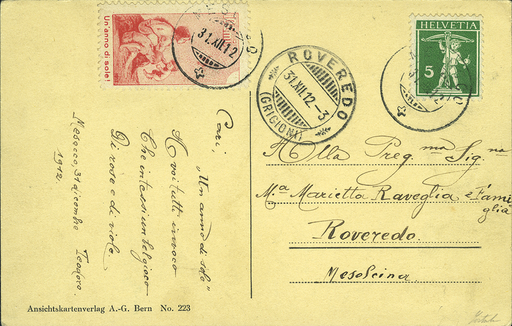 Un anno di sole!
31.XII.12
HELVETIA
5
ROVEREDO
31.XII.12-3
(GRIGIONI)
Cari,
"Un anno di sole"
A voi tutti invoco
Che intassi un bel gioco
Di rose e di viole.
Mesocco, 31 dicembre 1912.
Teodoro.
Alla Preg.ma Sig.na
M.a Marietta Raveglia e Famiglia
Roveredo.
Mesolcina.
Ansichtskartenverlag A.-G. Bern No. 223